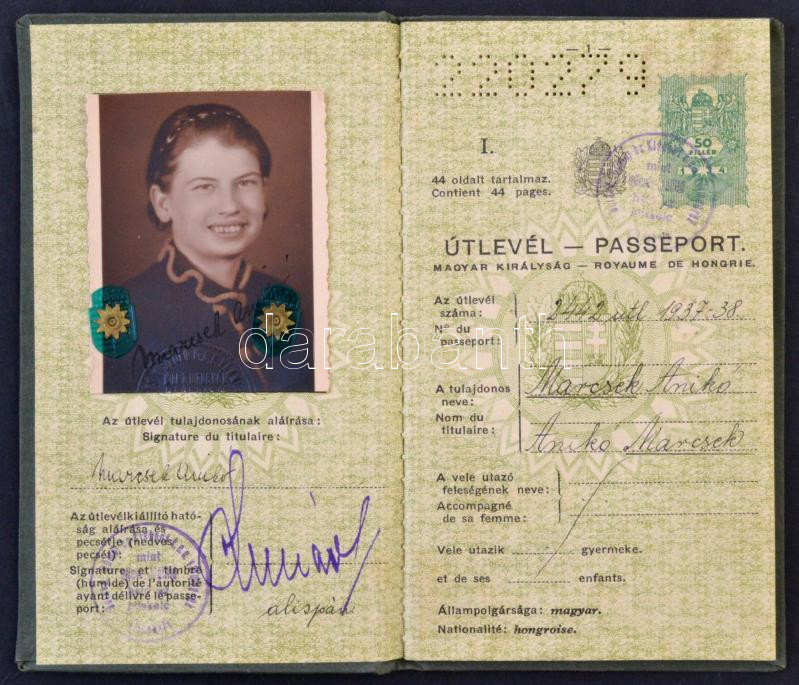 Marcsek Anikó
Az útlevél tulajdonosának aláírása:
Signature du titulaire:
Marcsek Anikó
Az útlevélkiállító ható-
ság aláírása és
pecsétje (nedves
pecsét):
Signature et timbre
(humide) de l'autorité
ayant délivré le passe-
port:
alispán
mint
— 1 —
220279
I.
50
FILLÉR
1934
mint
44 oldalt tartalmaz.
Contient 44 pages.
ÚTLEVÉL — PASSEPORT.
MAGYAR KIRÁLYSÁG — ROYAUME DE HONGRIE.
Az útlevél
száma:
Nº du
passeport:
2442 utl 1937-38.
A tulajdonos
neve:
Marcsek Anikó
Nom du
titulaire:
Anikó Marcsek
A vele utazó
feleségének neve:
Accompagné
de sa femme:
Vele utazik gyermeke.
et de ses enfants.
Állampolgársága: magyar.
Nationalité: hongroise.
darabanth